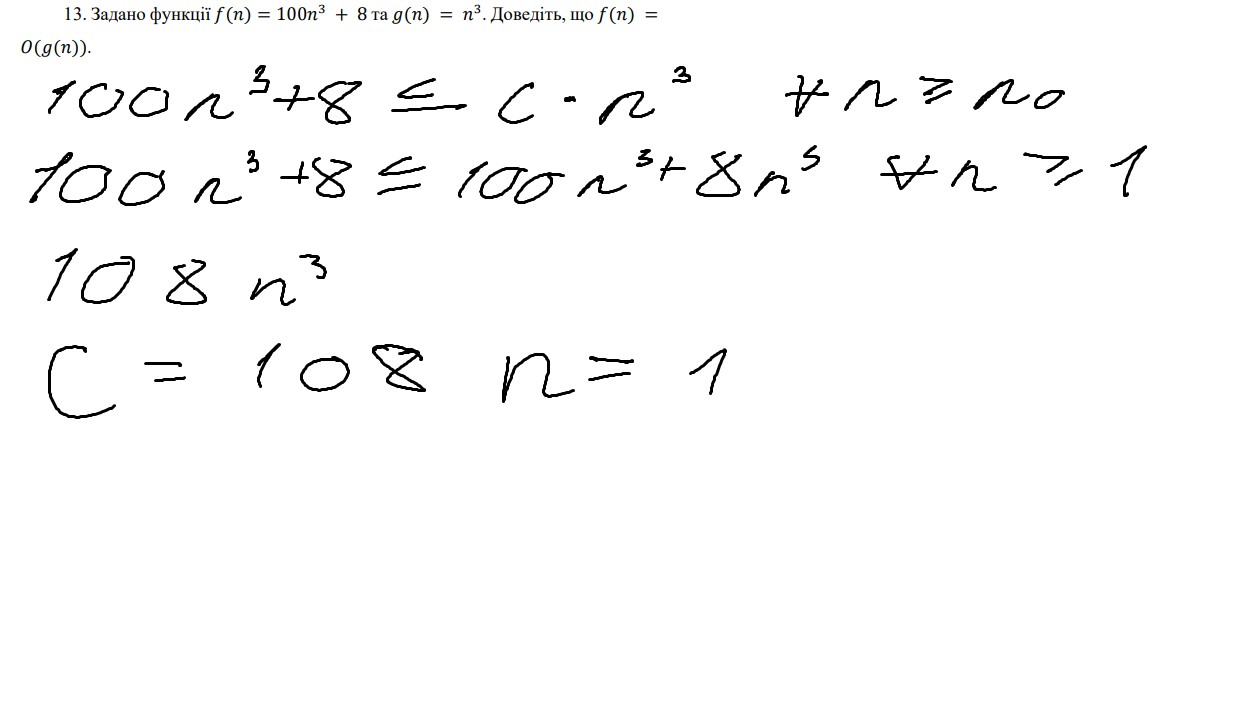 13. Задано функції f(n) = 100n³ + 8 та g(n) = n³. Доведіть, що f(n) =
O(g(n)).
100n³+8 ≤ C·n³ ∀n ≥ n₀
100n³+8 ≤ 100n³+8n⁵ ∀n ≥ 1
108n³
C = 108 n = 1